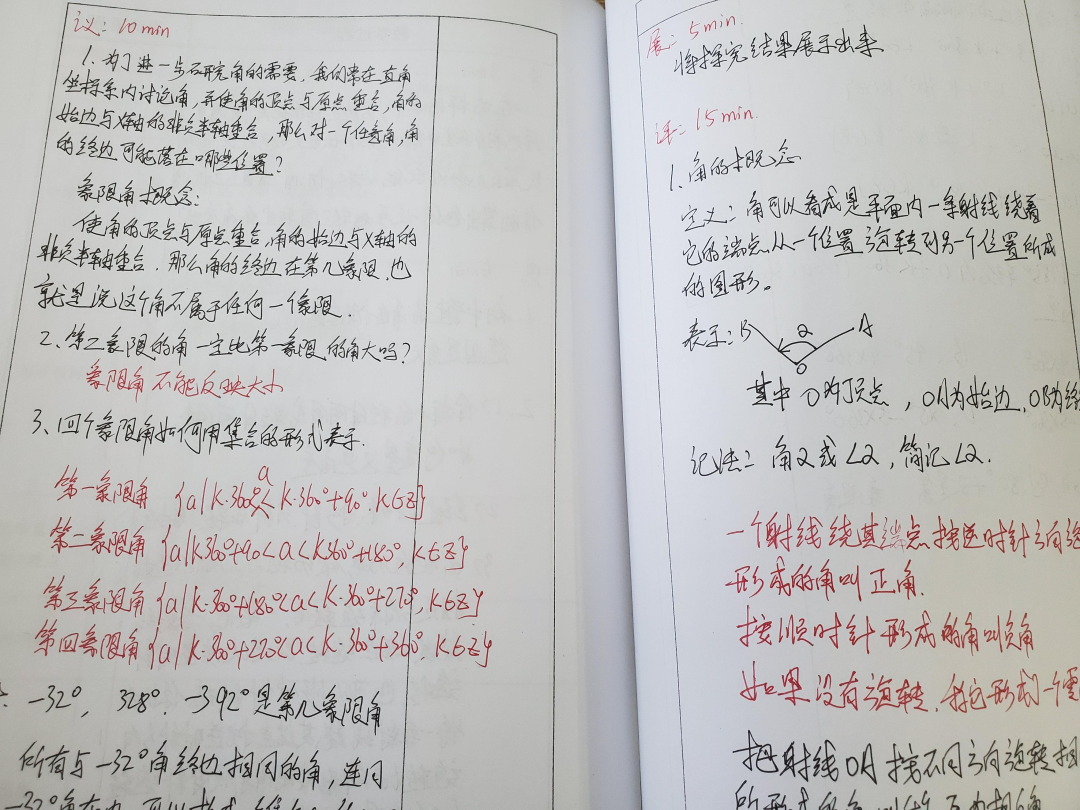 议: 10min
1. 为了进一步研究角的需要, 我们常在直角
坐标系内讨论角, 并使角的顶点与原点重合, 角的
始边与x轴的非负半轴重合, 那么对一个任意角, 角
的终边可能落在哪些位置?
象限角概念:
使角的顶点与原点重合, 角的始边与x轴的
非负半轴重合. 那么角的终边在第几象限. 也
就是说这个角不属于任何一个象限.
2、第二象限的角一定比第一象限的角大吗?
象限角不能反映大小
3、四个象限角如何用集合的形式表示.
第一象限角 {a|k·360°<a<k·360°+90°, k∈Z}
第二象限角 {a|k360°+90<a<k360°+180°, k∈Z}
第三象限角 {a|k·360°+180°<a<k·360°+270°, k∈Z}
第四象限角 {a|k·360°+270°<a<k·360°+360°, k∈Z}
-32°, 328°. -392°是第几象限角
所有与-32°角终边相同的角, 连同
-32°角在内
展: 5min.
将探究结果展示出来
评: 15min.
1. 角的概念
定义: 角可以看成是平面内一条射线绕着
它的端点从一个位置旋转到另一个位置所成
的图形。
表示: B α A
O
其中O为顶点, OA为始边, OB为终
记法: 角α或∠α, 简记∠α.
一个射线绕其端点按逆时针方向旋
形成的角叫正角.
按顺时针形成的角叫负角
如果没有旋转, 称它形成一个零
把射线OA按不同方向旋转相
所形成的角